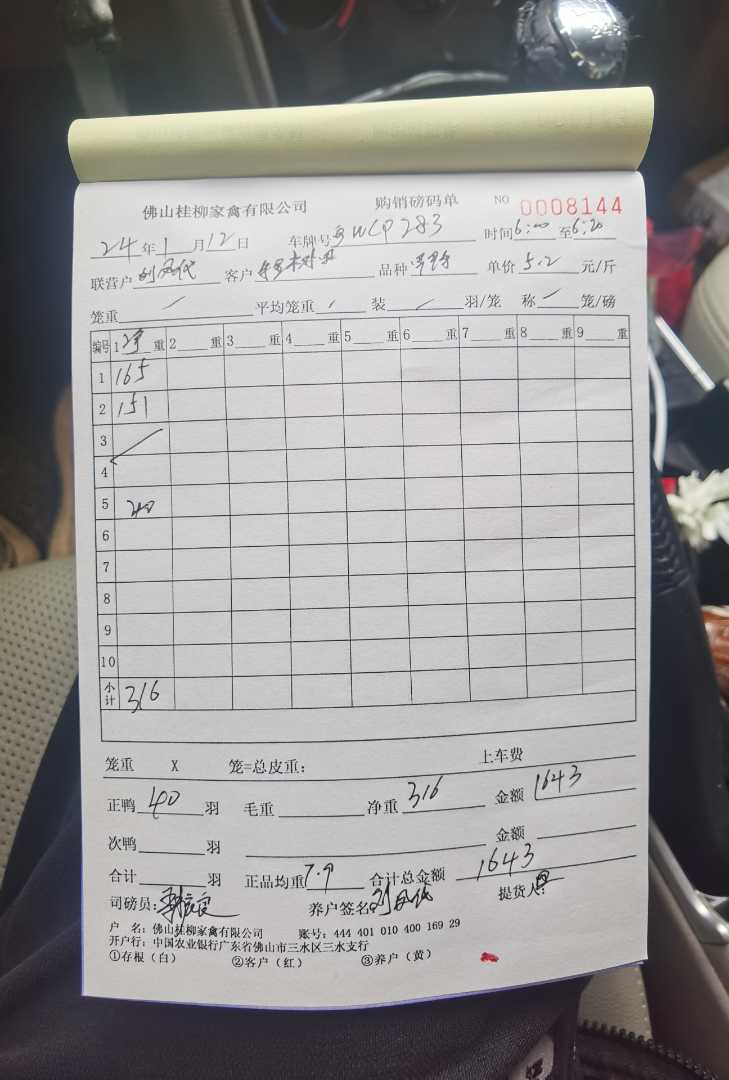 佛山桂柳家禽有限公司 购销磅码单 NO 0008144
24年1月12日 车牌号粤WCP283 时间6:00至6:20
联营户 客户 品种 单价5.2元/斤
笼重 / 平均笼重 / 装 / 羽/笼 称 / 笼/磅
编号 1净重 2 重 3 重 4 重 5 重 6 重 7 重 8 重 9 重
1 165
2 151
3
4
5 40
6
7
8
9
10
小计 316
笼重 X 笼=总皮重: 上车费
正鸭40羽 毛重 净重316 金额1643
次鸭 羽 金额
合计 羽 正品均重7.9 合计总金额1643
司磅员: 养户签名: 提货人:
户 名: 佛山桂柳家禽有限公司 账号: 444 401 010 400 169 29
开户行: 中国农业银行广东省佛山市三水区三水支行
①存根(白) ②客户(红) ③养户(黄)